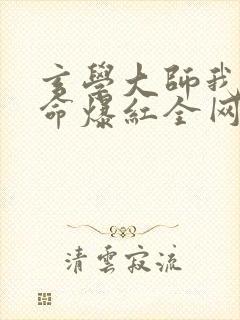 玄學大師我
命爆紅全网
清雲寂流